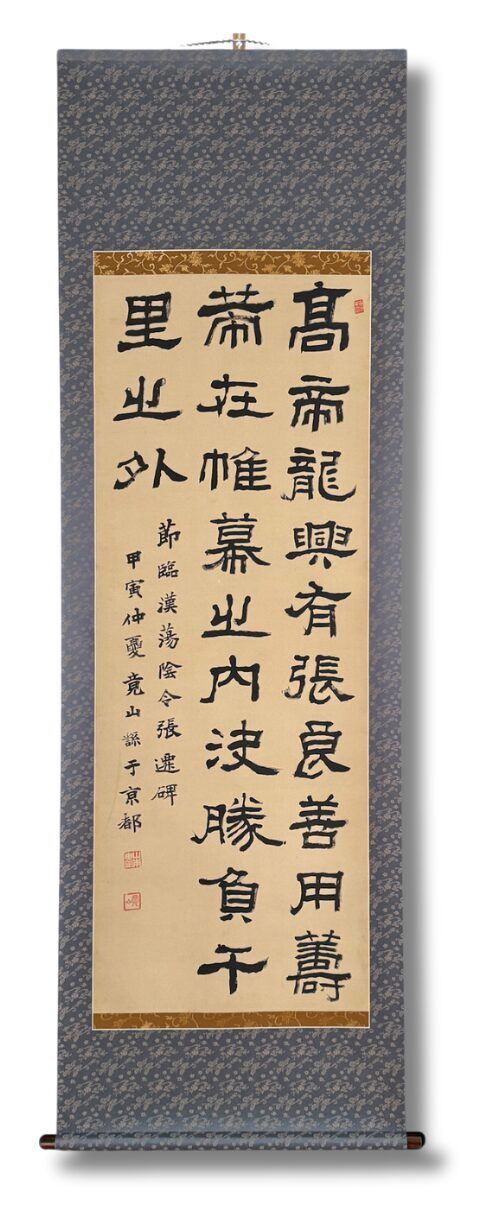 高帝龍興有張良善用籌
策在帷幕之內決勝負千
里之外
節臨漢蕩陰令張遷碑
甲寅仲夏竟山繇于京都